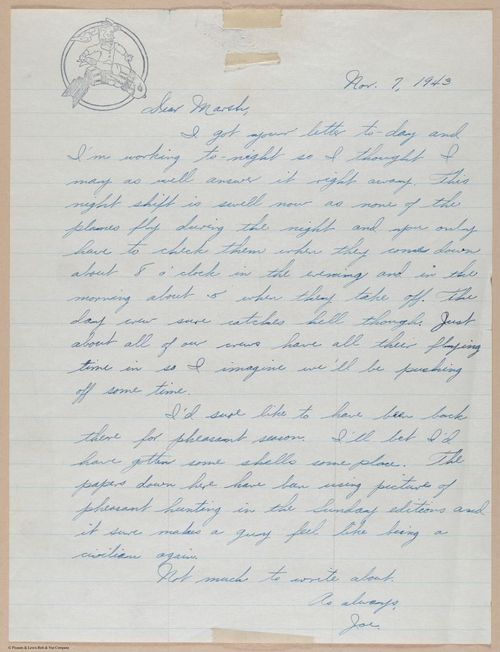 Nov. 7, 1943
Dear Marsh,
I got your letter to-day and
I'm working to-night so I thought I
may as well answer it right away. This
night shift is swell now as none of the
planes fly during the night and you only
have to check them when they come down
about 8 o'clock in the evening and in the
morning about 5 when they take off. The
day crew sure catches hell though. Just
about all of our crews have all their flying
time in so I imagine we'll be pushing
off some time.
I'd sure like to have been back
there for pheasant season. I'll bet I'd
have gotten some shells some place. The
papers down here have been using pictures of
pheasant hunting in the Sunday editions and
it sure makes a guy feel like being a
civilian again.
Not much to write about.
As always,
Joe.
© Pioneer & Lewis Bolt & Nut Company